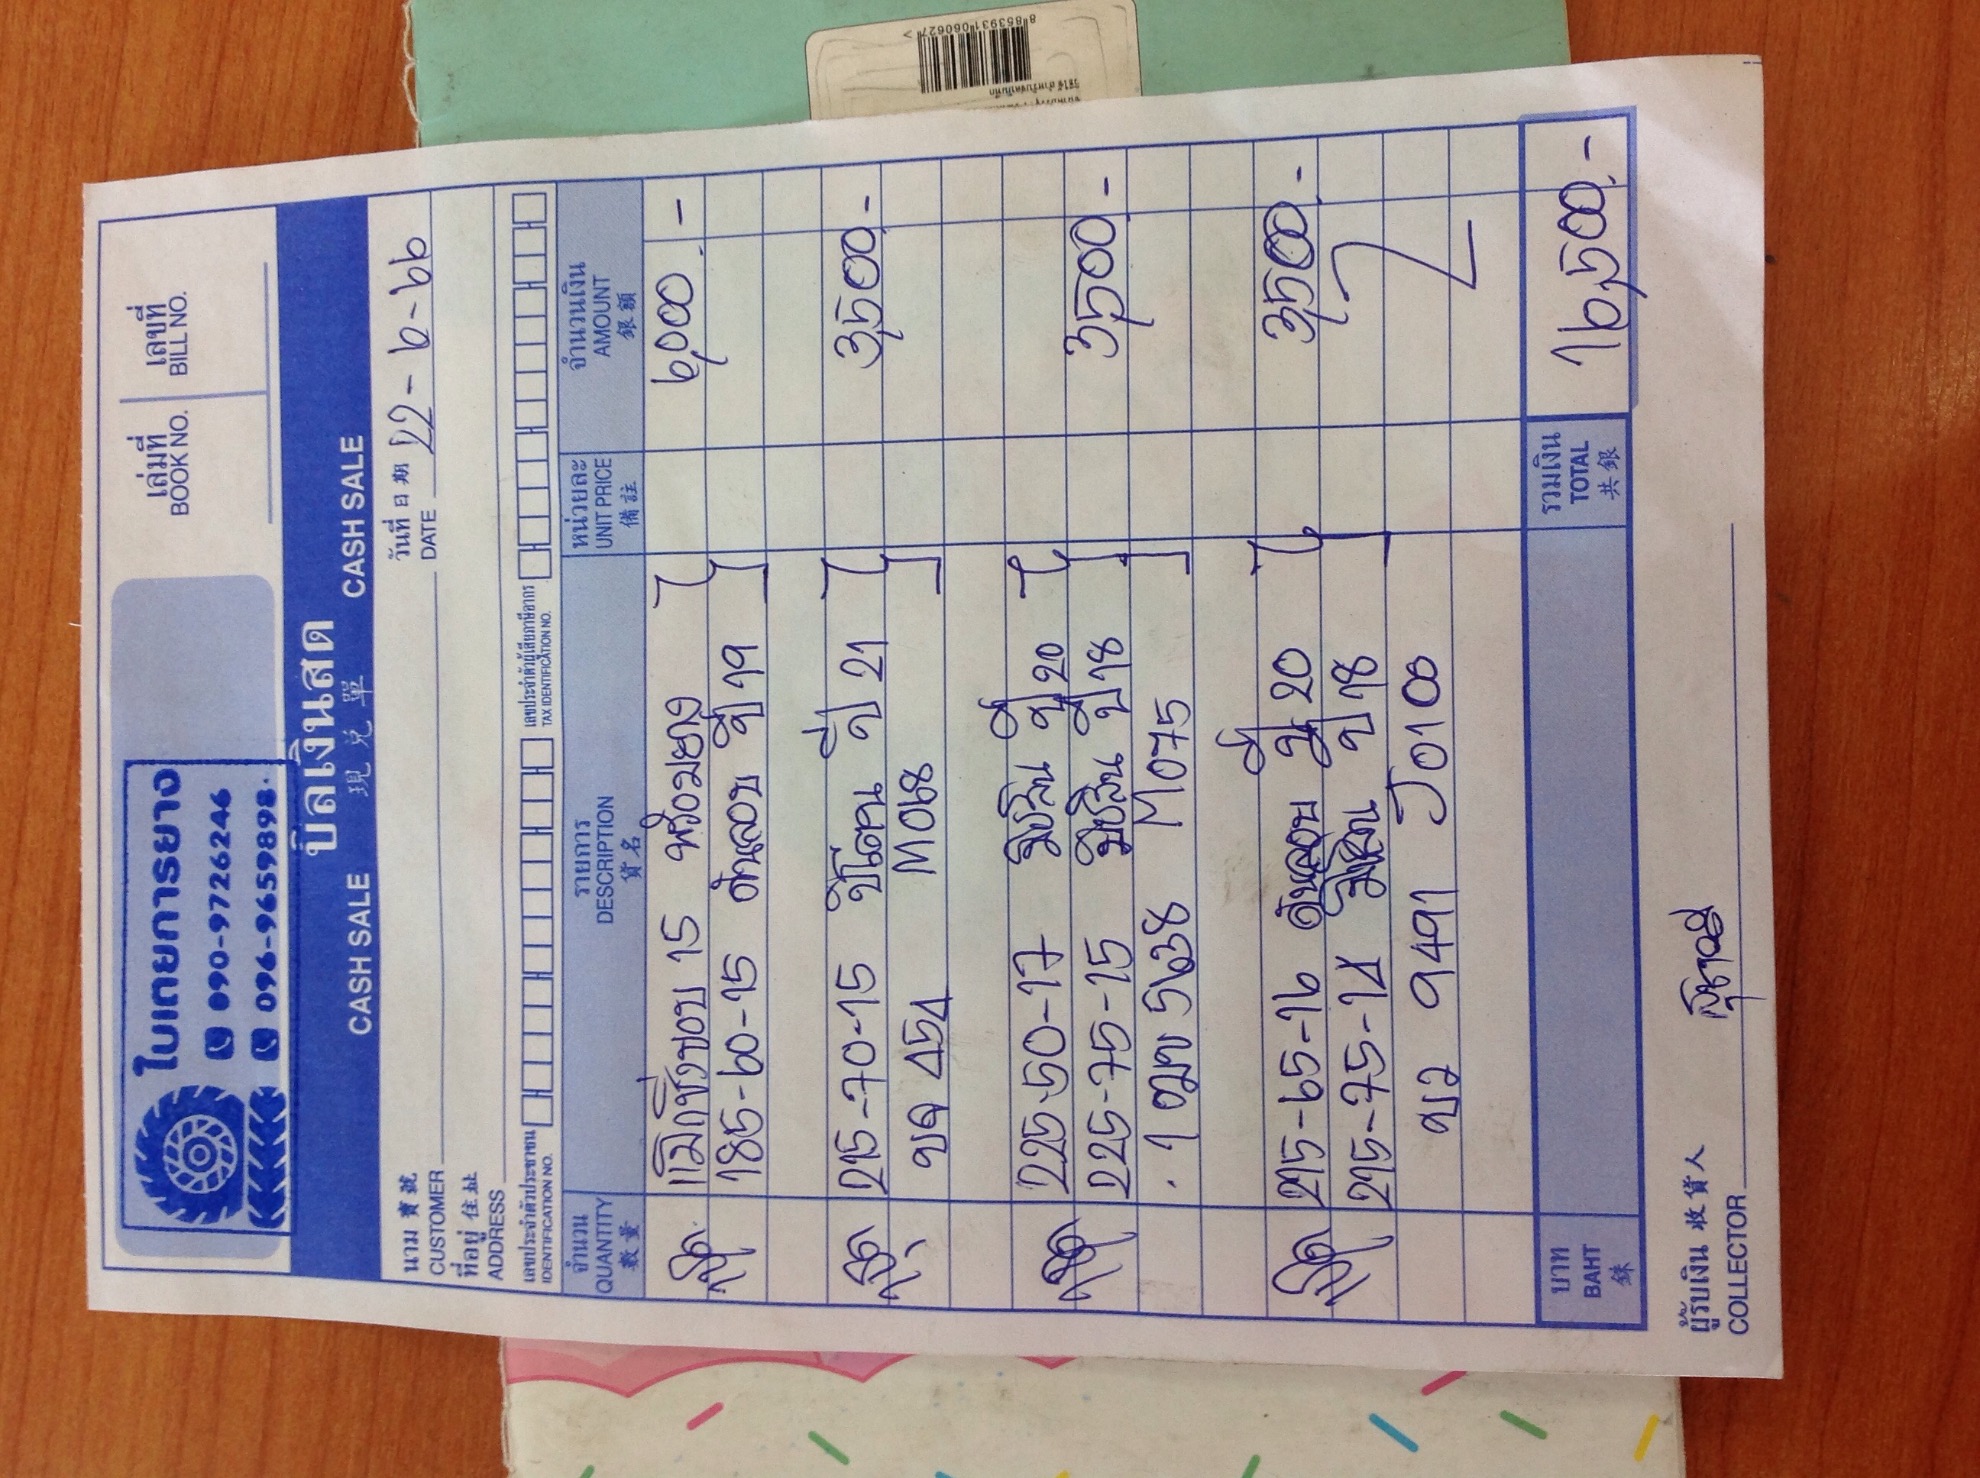 ใบเตยการยาง
090-9726246
096-9659898
เล่มที่ เลขที่
BOOK NO. BILL NO.
บิลเงินสด
CASH SALE 現兌單 CASH SALE
นาม 寶號
CUSTOMER
วันที่ 日期 22-6-66
DATE
ที่อยู่ 住址
ADDRESS
เลขประจำตัวประชาชน เลขประจำตัวผู้เสียภาษีอากร
IDENTIFICATION NO. TAX IDENTIFICATION NO.
จำนวน รายการ หน่วยละ จำนวนเงิน
QUANTITY DESCRIPTION UNIT PRICE AMOUNT
數量 貨名 備註 銀額
แม็กซิ่งขอบ 15 พร้อมยาง 6,000.-
185-60-15 ดันลอบ ปี 19
215-70-15 ปี 21 3,500.-
ขด 454 M068
225-50-17 มิชลิน ปี 20
225-75-15 มิชลิน ปี 18 3,500.-
1ฒฆ 5638 M075
215-65-16 ดันลอบ ปี 20 3,500.-
215-75-14 มิชลิน ปี 18
ขว 9491 J0100
บาท รวมเงิน 16,500.-
BAHT TOTAL
銖 共銀
ผู้รับเงิน 收貨人
COLLECTOR
8 853931 060627 >